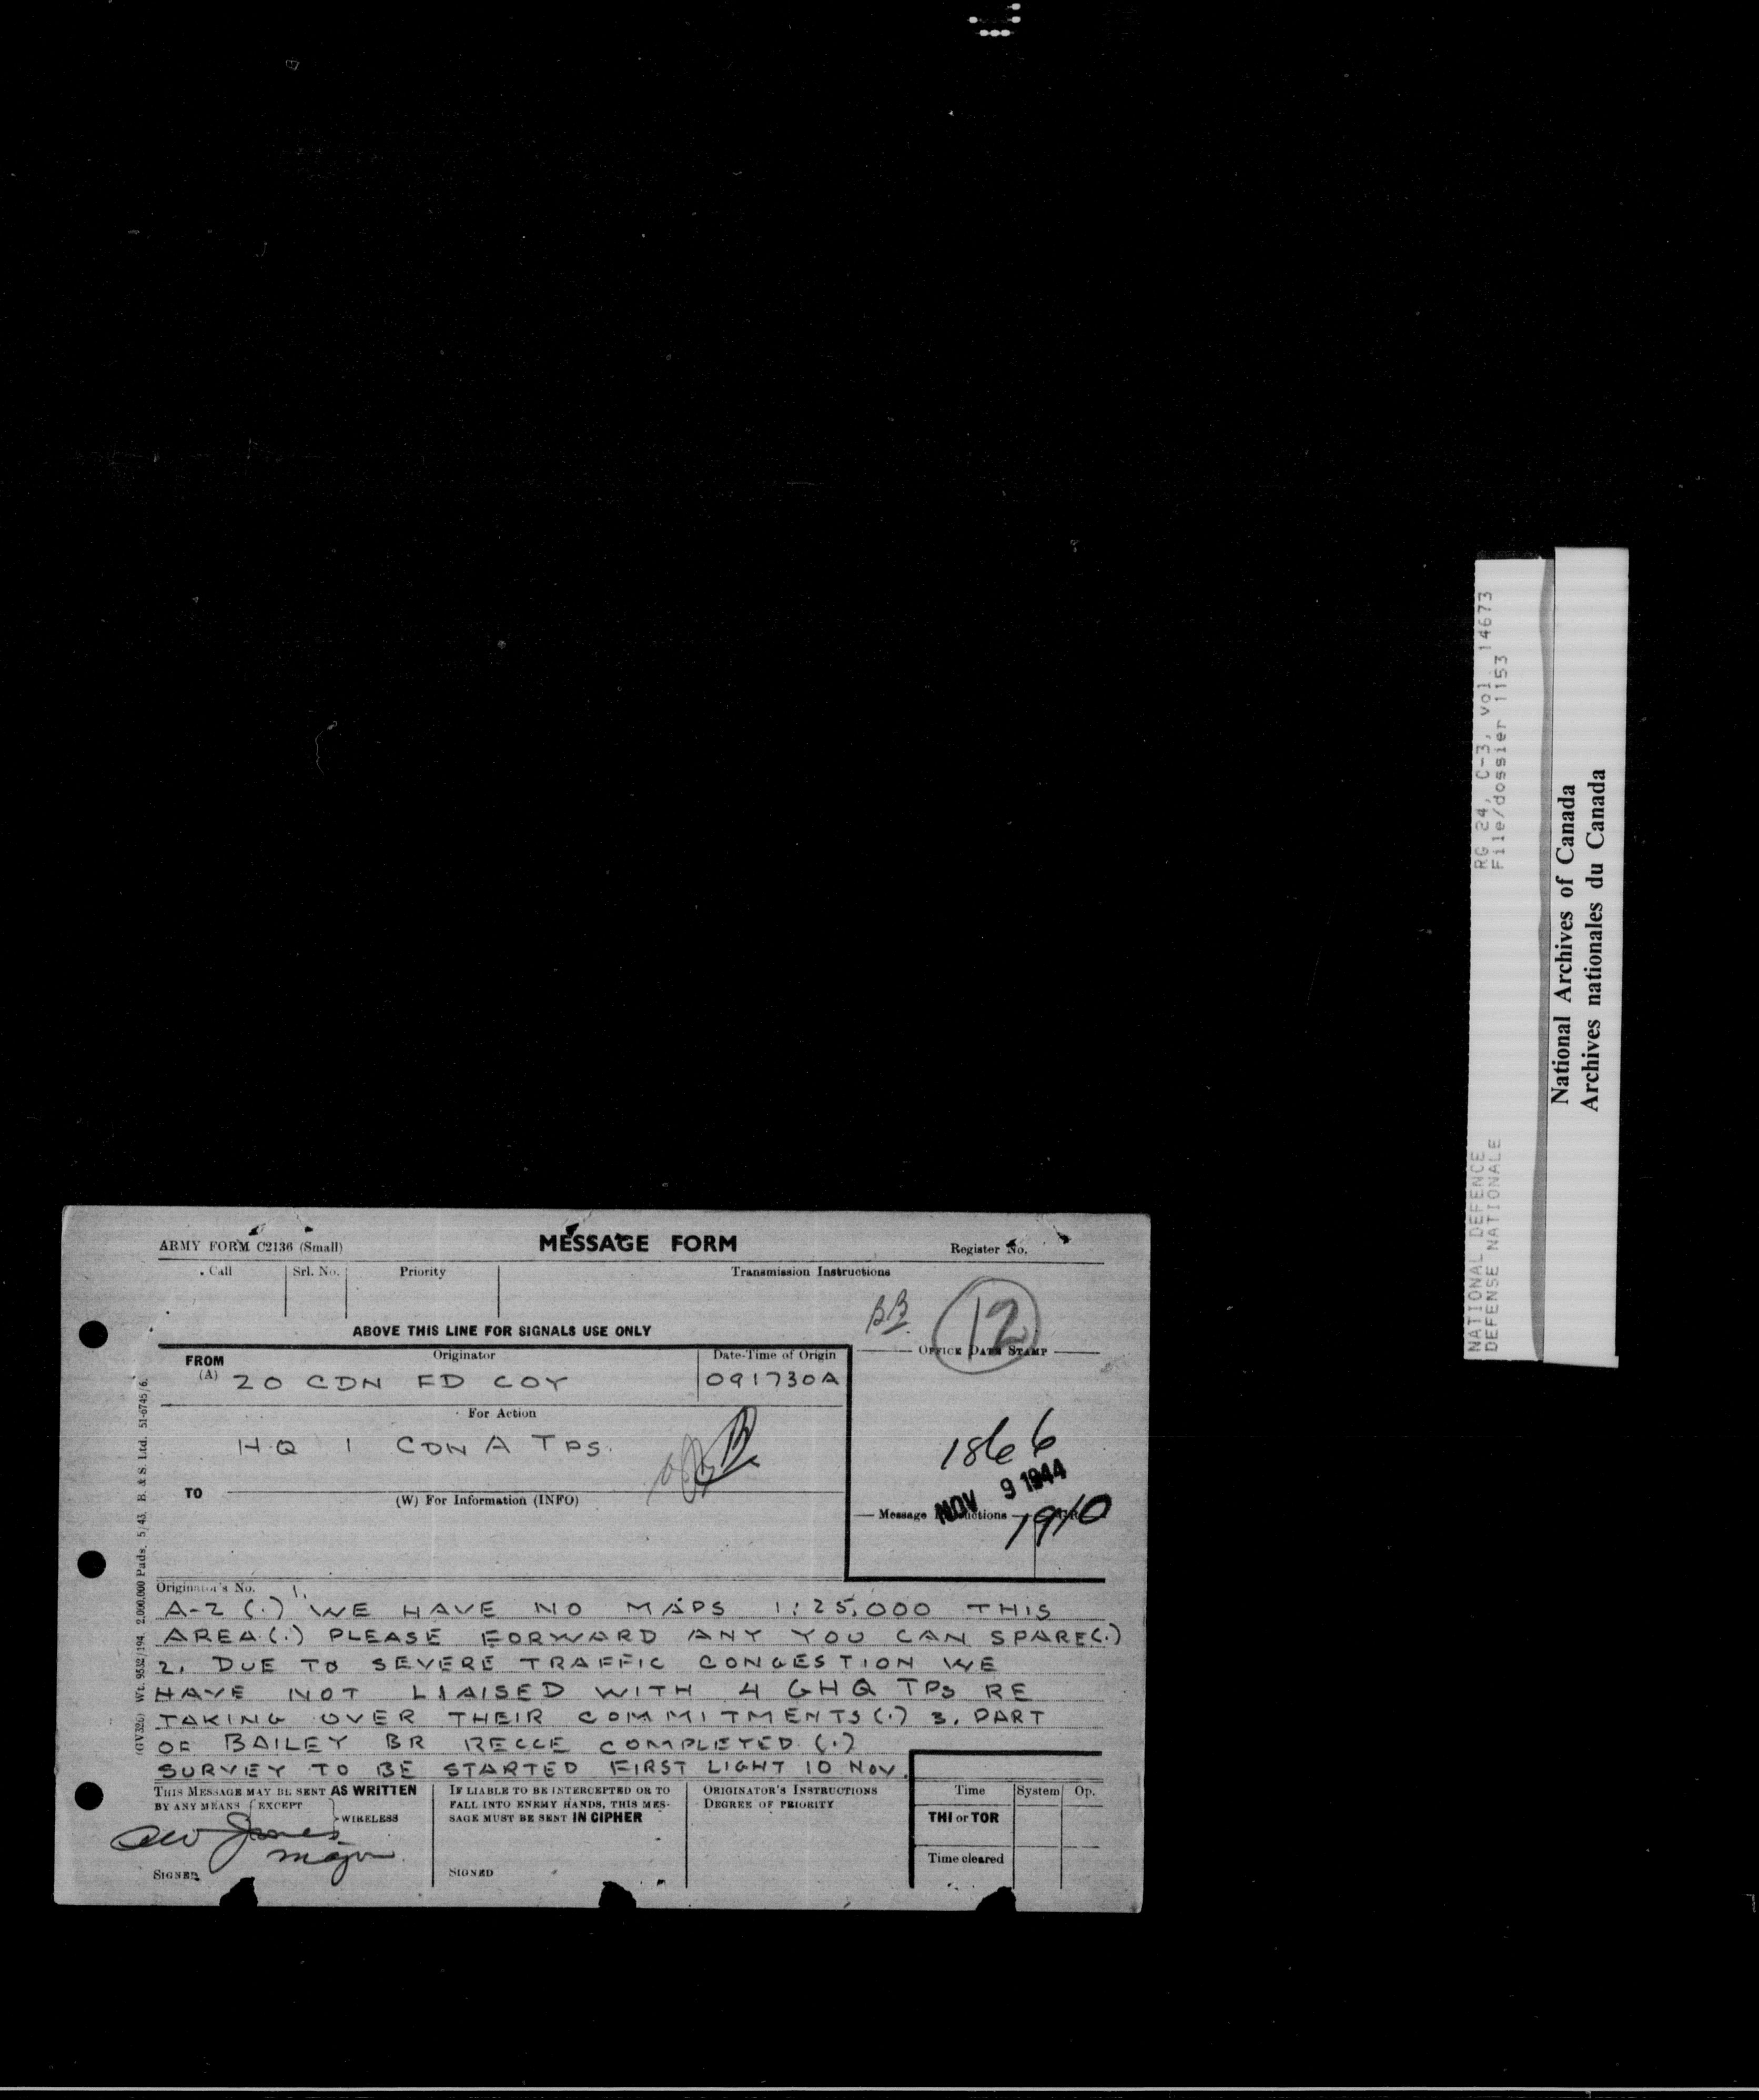 ARMY FORM C2136 (Small)
MESSAGE FORM
Register No.
Call
Srl. No.
Priority
Transmission Instructions
12
ABOVE THIS LINE FOR SIGNALS USE ONLY
OFFICE DATE STAMP
FROM
(A)
Originator
20 CDN FD COY
Date-Time of Origin
091730A
For Action
HQ 1 CDN A TPS.
1866
NOV 9 1944
1910
TO
(W) For Information (INFO)
Message Instructions
Originator's No.
A-2 (.) 1. WE HAVE NO MAPS 1:25,000 THIS
AREA (.) PLEASE FORWARD ANY YOU CAN SPARE (.)
2. DUE TO SEVERE TRAFFIC CONGESTION WE
HAVE NOT LIAISED WITH 4 GHQ TPS RE
TAKING OVER THEIR COMMITMENTS (.) 3. PART
OF BAILEY BR RECCE COMPLETED (.)
SURVEY TO BE STARTED FIRST LIGHT 10 NOV.
THIS MESSAGE MAY BE SENT AS WRITTEN
BY ANY MEANS EXCEPT
WIRELESS
Jones
Major
SIGNED
IF LIABLE TO BE INTERCEPTED OR TO
FALL INTO ENEMY HANDS, THIS MES-
SAGE MUST BE SENT IN CIPHER
SIGNED
ORIGINATOR'S INSTRUCTIONS
DEGREE OF PRIORITY
Time
System
Op.
THI or TOR
Time cleared
Wt. 9532/194. 2,000,000 Pads. 5/43. B. & S. Ltd. 51-6745/6.
RG 24, C-3, vol. 14673
File/dossier 1153
NATIONAL DEFENCE
DEFENSE NATIONALE
National Archives of Canada
Archives nationales du Canada